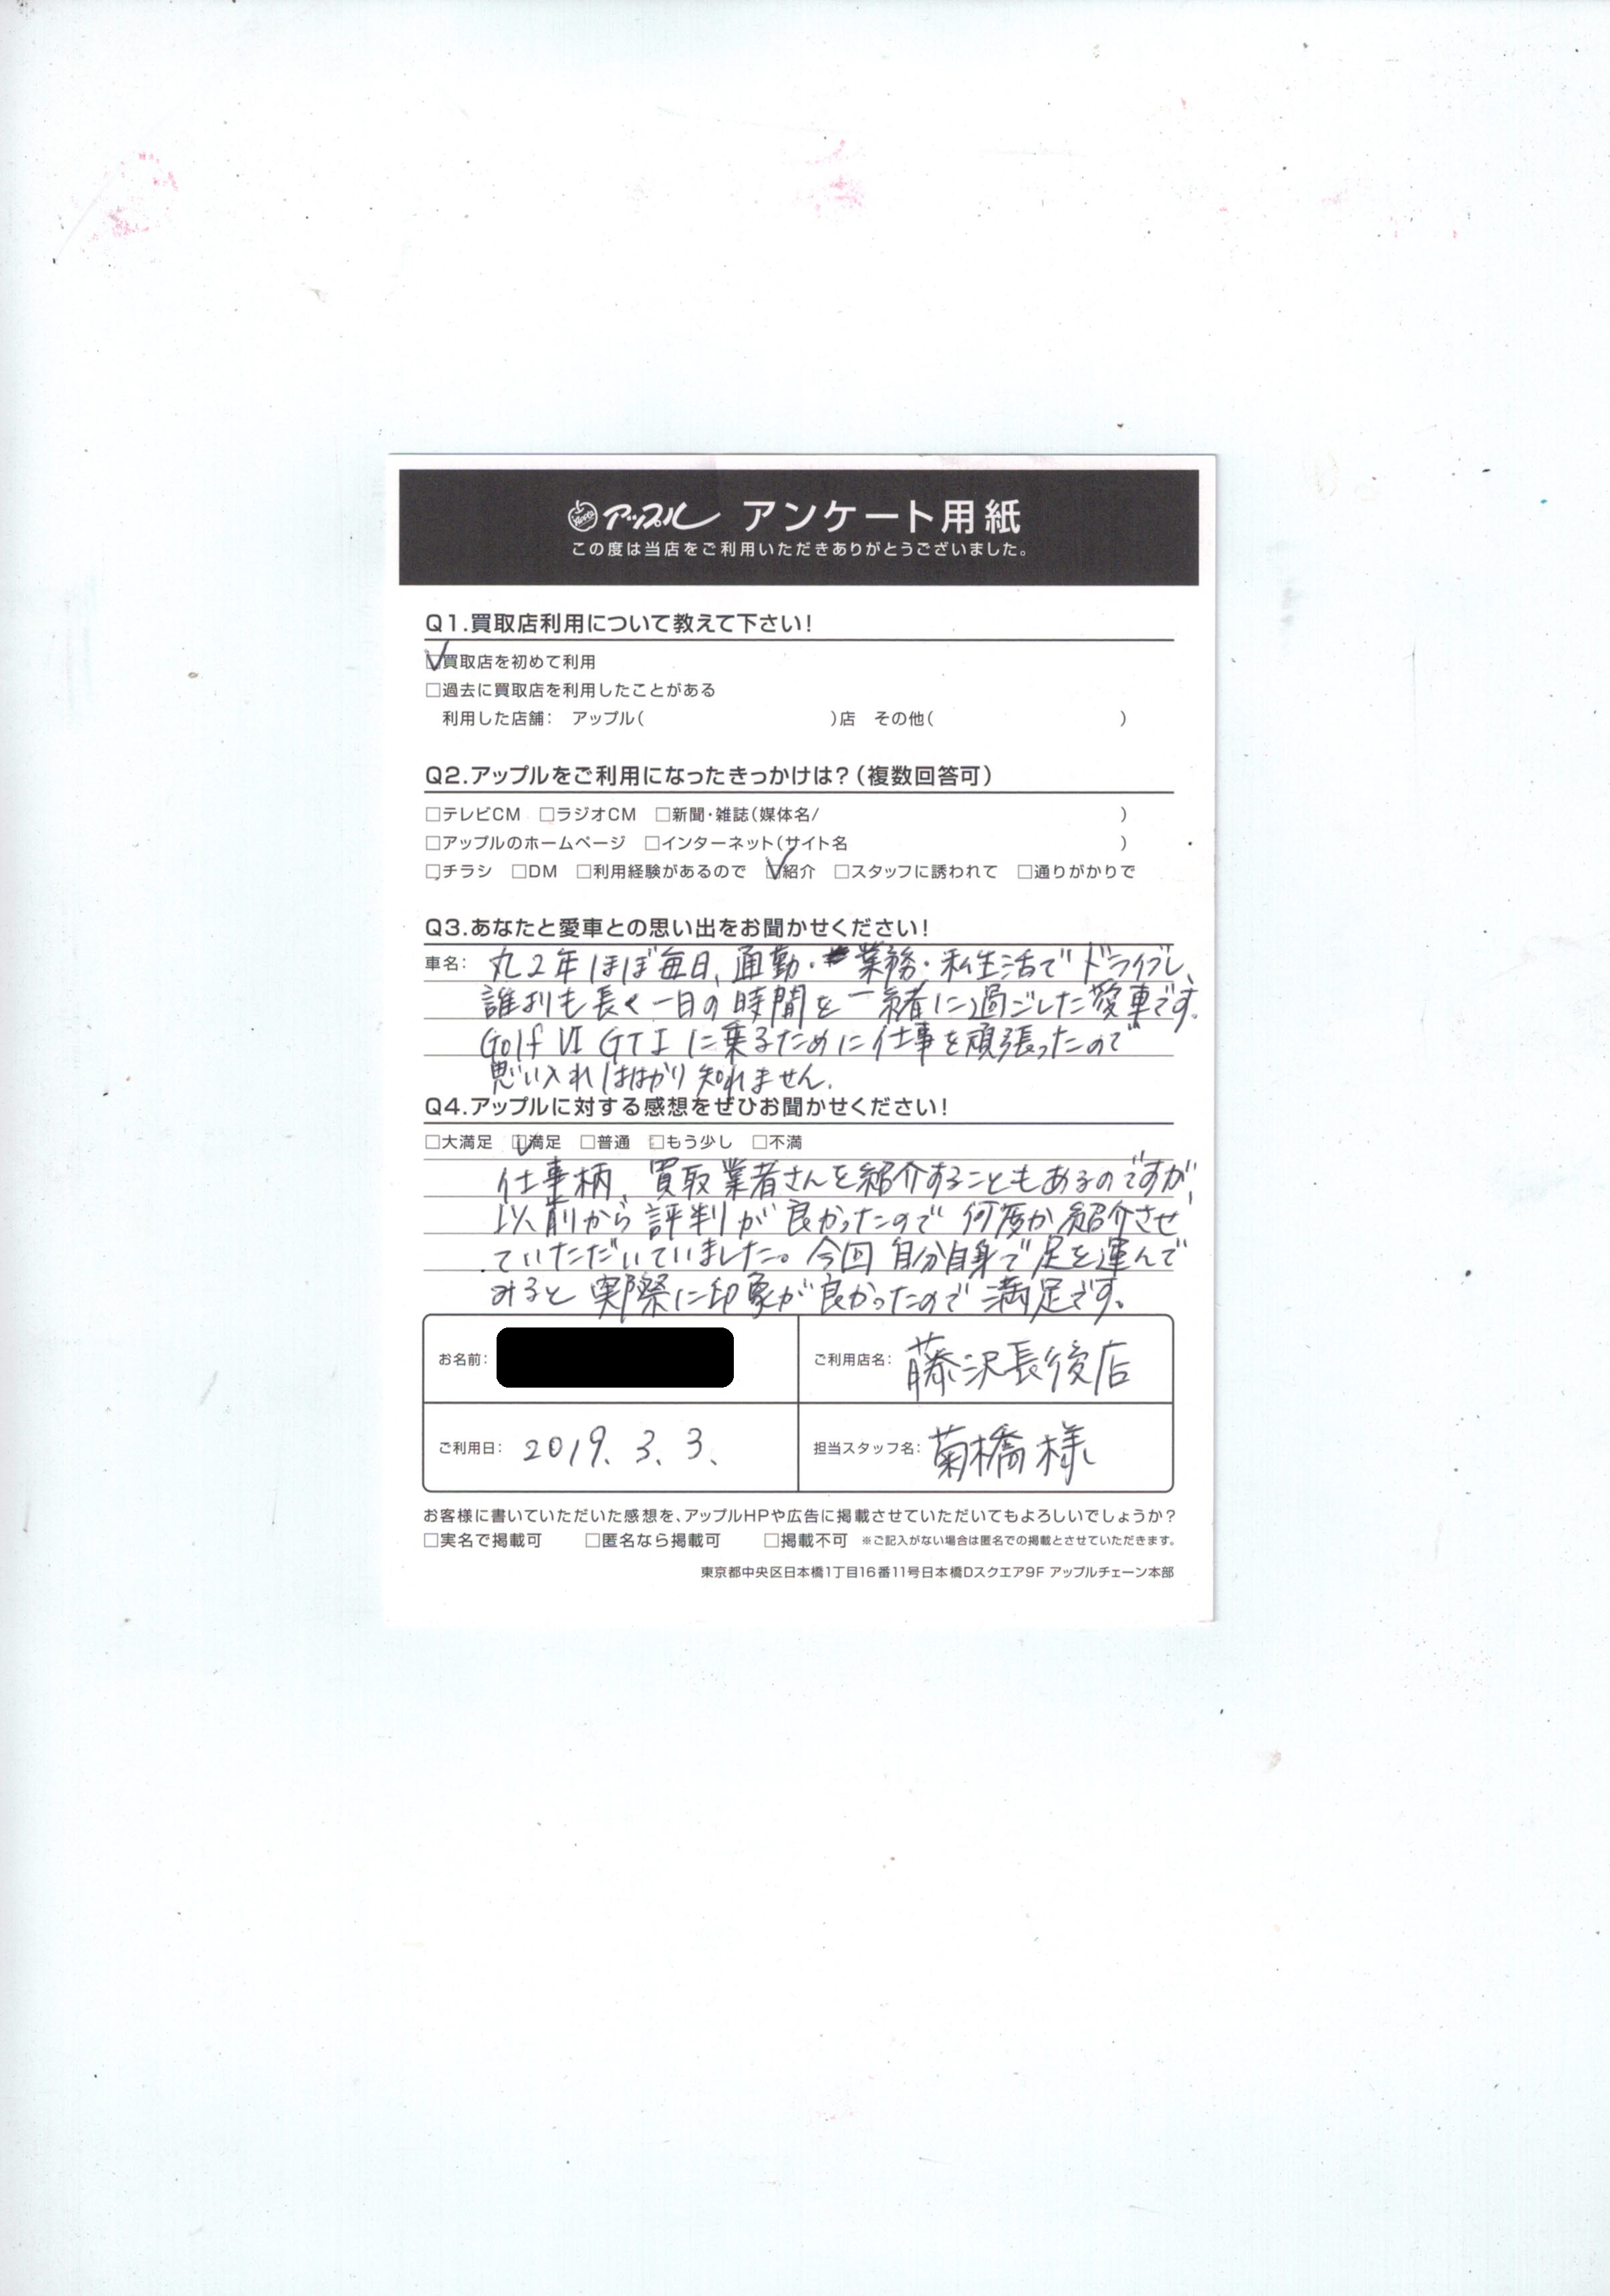 アップル アンケート用紙
この度は当店をご利用いただきありがとうございました。
Q1.買取店利用について教えて下さい!
☑買取店を初めて利用
□過去に買取店を利用したことがある
利用した店舗: アップル( )店 その他( )
Q2.アップルをご利用になったきっかけは?(複数回答可)
□テレビCM □ラジオCM □新聞・雑誌(媒体名/ )
□アップルのホームページ □インターネット(サイト名 )
□チラシ □DM □利用経験があるので ☑紹介 □スタッフに誘われて □通りがかりで
Q3.あなたと愛車との思い出をお聞かせください!
車名: 丸2年ほぼ毎日、通勤・業務・私生活でドライブし、
誰よりも長く一日の時間を一緒に過ごした愛車です。
Golf Ⅵ GTI に乗るために仕事を頑張ったので
思い入れははかり知れません。
Q4.アップルに対する感想をぜひお聞かせください!
□大満足 ☑満足 □普通 □もう少し □不満
仕事柄、買取業者さんを紹介することもあるのですが、
以前から評判が良かったので何度か紹介させ
ていただいていました。今回自分自身で足を運んで
みると実際に印象が良かったので満足です。
お名前:
ご利用店名: 藤沢長後店
ご利用日: 2019. 3. 3.
担当スタッフ名: 菊橋様
お客様に書いていただいた感想を、アップルHPや広告に掲載させていただいてもよろしいでしょうか?
□実名で掲載可 □匿名なら掲載可 □掲載不可 ※ご記入がない場合は匿名での掲載とさせていただきます。
東京都中央区日本橋1丁目16番11号日本橋Dスクエア9F アップルチェーン本部